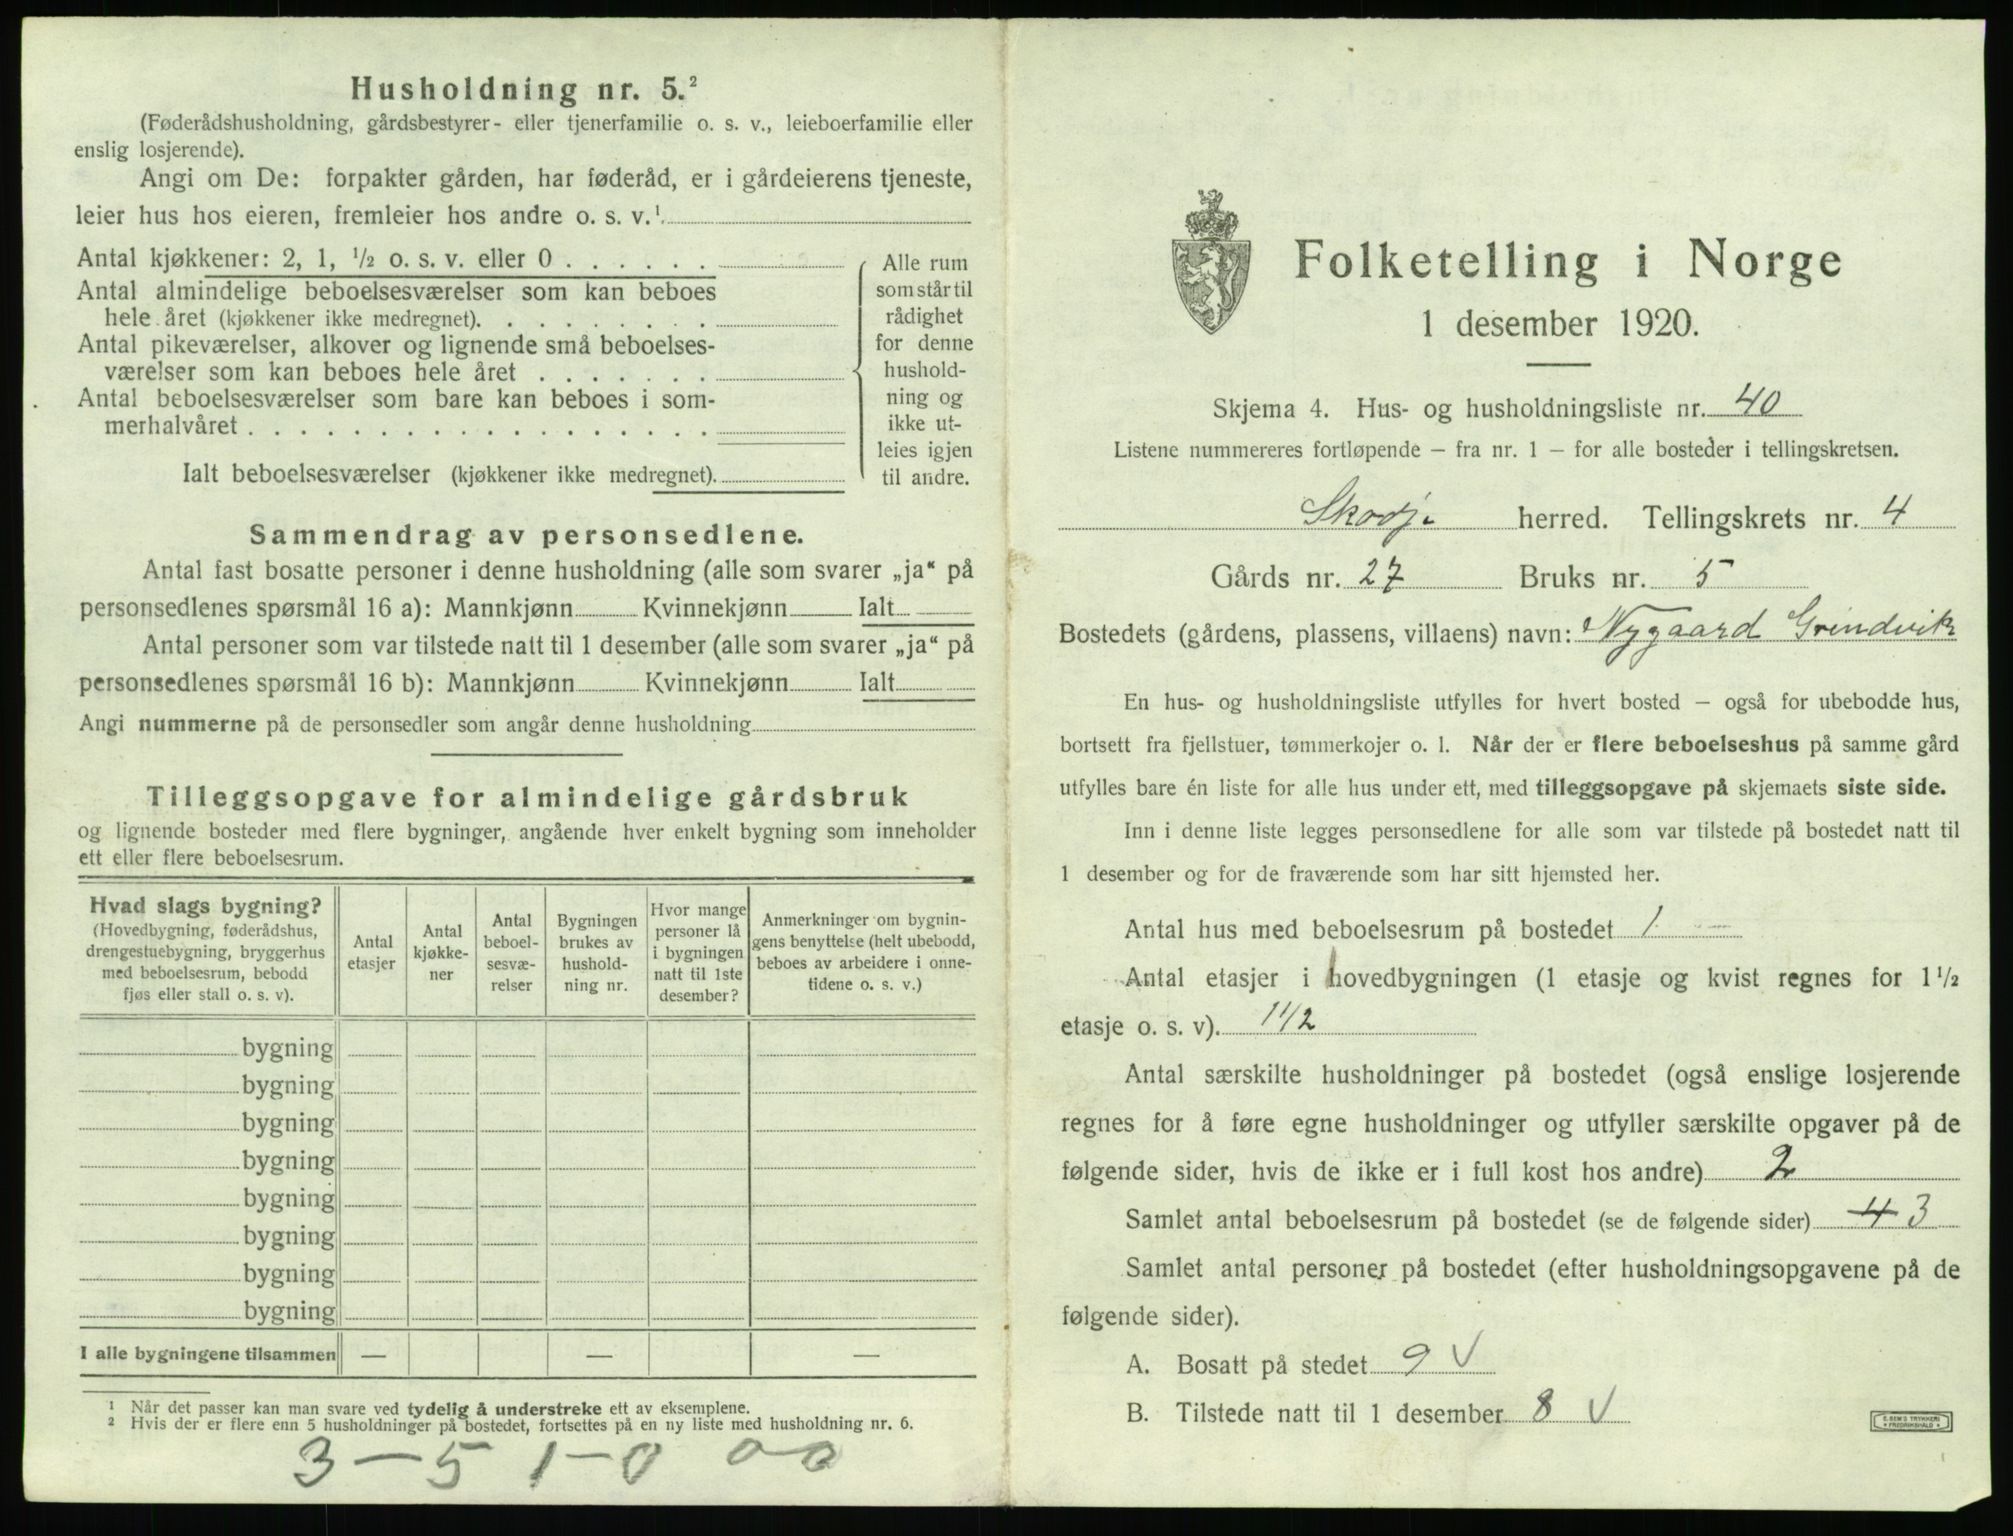 Husholdning nr. 5.²
(Føderådshusholdning, gårdsbestyrer- eller tjenerfamilie o. s. v., leieboerfamilie eller
enslig losjerende).
Angi om De: forpakter gården, har føderåd, er i gårdeierens tjeneste,
leier hus hos eieren, fremleier hos andre o. s. v.¹
Antal kjøkkener: 2, 1, ½ o. s. v. eller 0 . . . . . .
Antal almindelige beboelsesværelser som kan beboes
hele året (kjøkkener ikke medregnet). . . . . . . . .
Antal pikeværelser, alkover og lignende små beboelses-
værelser som kan beboes hele året . . . . . . .
Antal beboelsesværelser som bare kan beboes i som-
merhalvåret . . . . . . . . . . . . . . . . . .
Ialt beboelsesværelser (kjøkkener ikke medregnet).
Alle rum
som står til
rådighet
for denne
hushold-
ning og
ikke ut-
leies igjen
til andre.
Sammendrag av personsedlene.
Antal fast bosatte personer i denne husholdning (alle som svarer „ja“ på
personsedlenes spørsmål 16 a): Mannkjønn Kvinnekjønn Ialt
Antal personer som var tilstede natt til 1 desember (alle som svarer „ja“ på
personsedlenes spørsmål 16 b): Mannkjønn Kvinnekjønn Ialt
Angi nummerne på de personsedler som angår denne husholdning
Tilleggsopgave for almindelige gårdsbruk
og lignende bosteder med flere bygninger, angående hver enkelt bygning som inneholder
ett eller flere beboelsesrum.
Hvad slags bygning?
(Hovedbygning, føderådshus,
drengestuebygning, bryggerhus
med beboelsesrum, bebodd
fjøs eller stall o. s. v).
Antal
etasjer
Antal
kjøkke-
ner
Antal
beboel-
sesvæ-
relser
Bygningen
brukes av
hushold-
ning nr.
Hvor mange
personer lå
i bygningen
natt til 1ste
desember?
Anmerkninger om bygnin-
gens benyttelse (helt ubebodd,
beboes av arbeidere i onne-
tidene o. s. v.)
bygning
bygning
bygning
bygning
bygning
bygning
bygning
bygning
I alle bygningene tilsammen — — —
¹ Når det passer kan man svare ved tydelig å understreke ett av eksemplene.
² Hvis der er flere enn 5 husholdninger på bostedet, fortsettes på en ny liste med husholdning nr. 6.
3 — 5 1 — 0 0 — 0
Folketelling i Norge
1 desember 1920.
Skjema 4. Hus- og husholdningsliste nr. 40
Listene nummereres fortløpende – fra nr. 1 – for alle bosteder i tellingskretsen.
Skodje herred. Tellingskrets nr. 4
Gårds nr. 27 Bruks nr. 5
Bostedets (gårdens, plassens, villaens) navn: Nygaard Grindvik
En hus- og husholdningsliste utfylles for hvert bosted – også for ubebodde hus,
bortsett fra fjellstuer, tømmerkojer o. l. Når der er flere beboelseshus på samme gård
utfylles bare én liste for alle hus under ett, med tilleggsopgave på skjemaets siste side.
Inn i denne liste legges personsedlene for alle som var tilstede på bostedet natt til
1 desember og for de fraværende som har sitt hjemsted her.
Antal hus med beboelsesrum på bostedet 1
Antal etasjer i hovedbygningen (1 etasje og kvist regnes for 1½
etasje o. s. v). 1 1/2
Antal særskilte husholdninger på bostedet (også enslige losjerende
regnes for å føre egne husholdninger og utfyller særskilte opgaver på de
følgende sider, hvis de ikke er i full kost hos andre) 2
Samlet antal beboelsesrum på bostedet (se de følgende sider) 4 3
Samlet antal personer på bostedet (efter husholdningsopgavene på de
følgende sider).
A. Bosatt på stedet 9 V
B. Tilstede natt til 1 desember 8 V
E. SEM'S TRYKKERI
FREDRIKSHALD